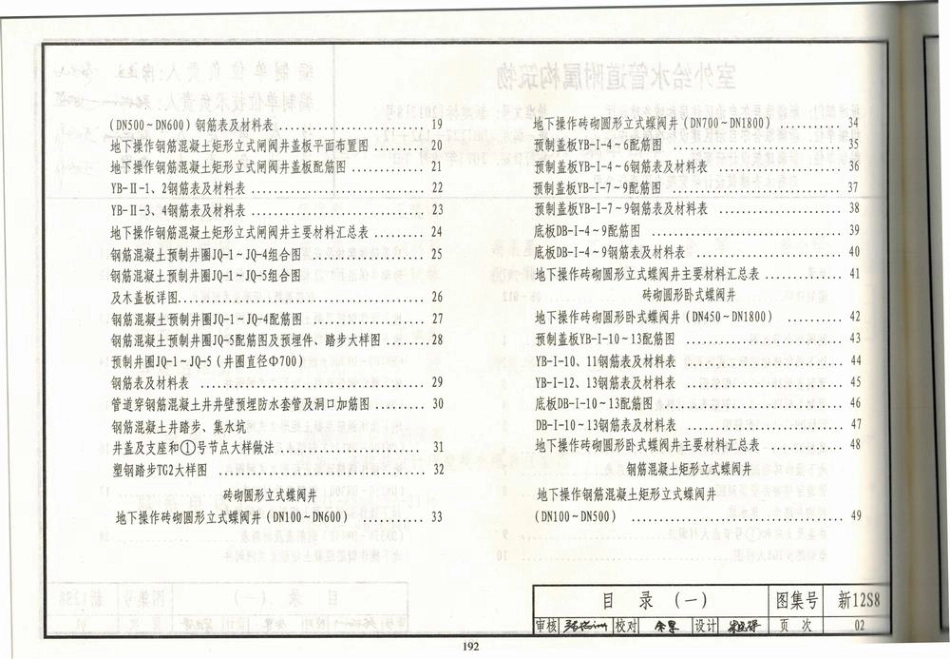 (DN500~DN600)钢筋表及材料表 19
地下操作钢筋混凝土矩形立式闸阀井盖板平面布置图 20
地下操作钢筋混凝土矩形立式闸阀井盖板配筋图 21
YB-Ⅱ-1、2钢筋表及材料表 22
YB-Ⅱ-3、4钢筋表及材料表 23
地下操作钢筋混凝土矩形立式闸阀井主要材料汇总表 24
钢筋混凝土预制井圈JQ-1~JQ-4组合图 25
钢筋混凝土预制井圈JQ-1~JQ-5组合图
及木盖板详图 26
钢筋混凝土预制井圈JQ-1~JQ-4配筋图 27
钢筋混凝土预制井圈JQ-5配筋图及预埋件、踏步大样图 28
预制井圈JQ-1~JQ-5(井圈直径Φ700)
钢筋表及材料表 29
管道穿钢筋混凝土井井壁预埋防水套管及洞口加筋图 30
钢筋混凝土井踏步、集水坑
井盖及支座和①号节点大样做法 31
塑钢踏步TG2大样图 32
砖砌圆形立式蝶阀井
地下操作砖砌圆形立式蝶阀井(DN100~DN600) 33
地下操作砖砌圆形立式蝶阀井(DN700~DN1800) 34
预制盖板YB-I-4~6配筋图 35
预制盖板YB-I-4~6钢筋表及材料表 36
预制盖板YB-I-7~9配筋图 37
预制盖板YB-I-7~9钢筋表及材料表 38
底板DB-I-4~9配筋图 39
底板DB-I-4~9钢筋表及材料表 40
地下操作砖砌圆形立式蝶阀井主要材料汇总表 41
砖砌圆形卧式蝶阀井
地下操作砖砌圆形卧式蝶阀井(DN450~DN1800) 42
预制盖板YB-I-10~13配筋图 43
YB-I-10、11钢筋表及材料表 44
YB-I-12、13钢筋表及材料表 45
底板DB-I-10~13配筋图 46
DB-I-10~13钢筋表及材料表 47
地下操作砖砌圆形卧式蝶阀井主要材料汇总表 48
钢筋混凝土矩形立式蝶阀井
地下操作钢筋混凝土矩形立式蝶阀井
(DN100~DN500) 49
目 录 (一) 图集号 新12S8
审核 校对 设计 页 次 02
192